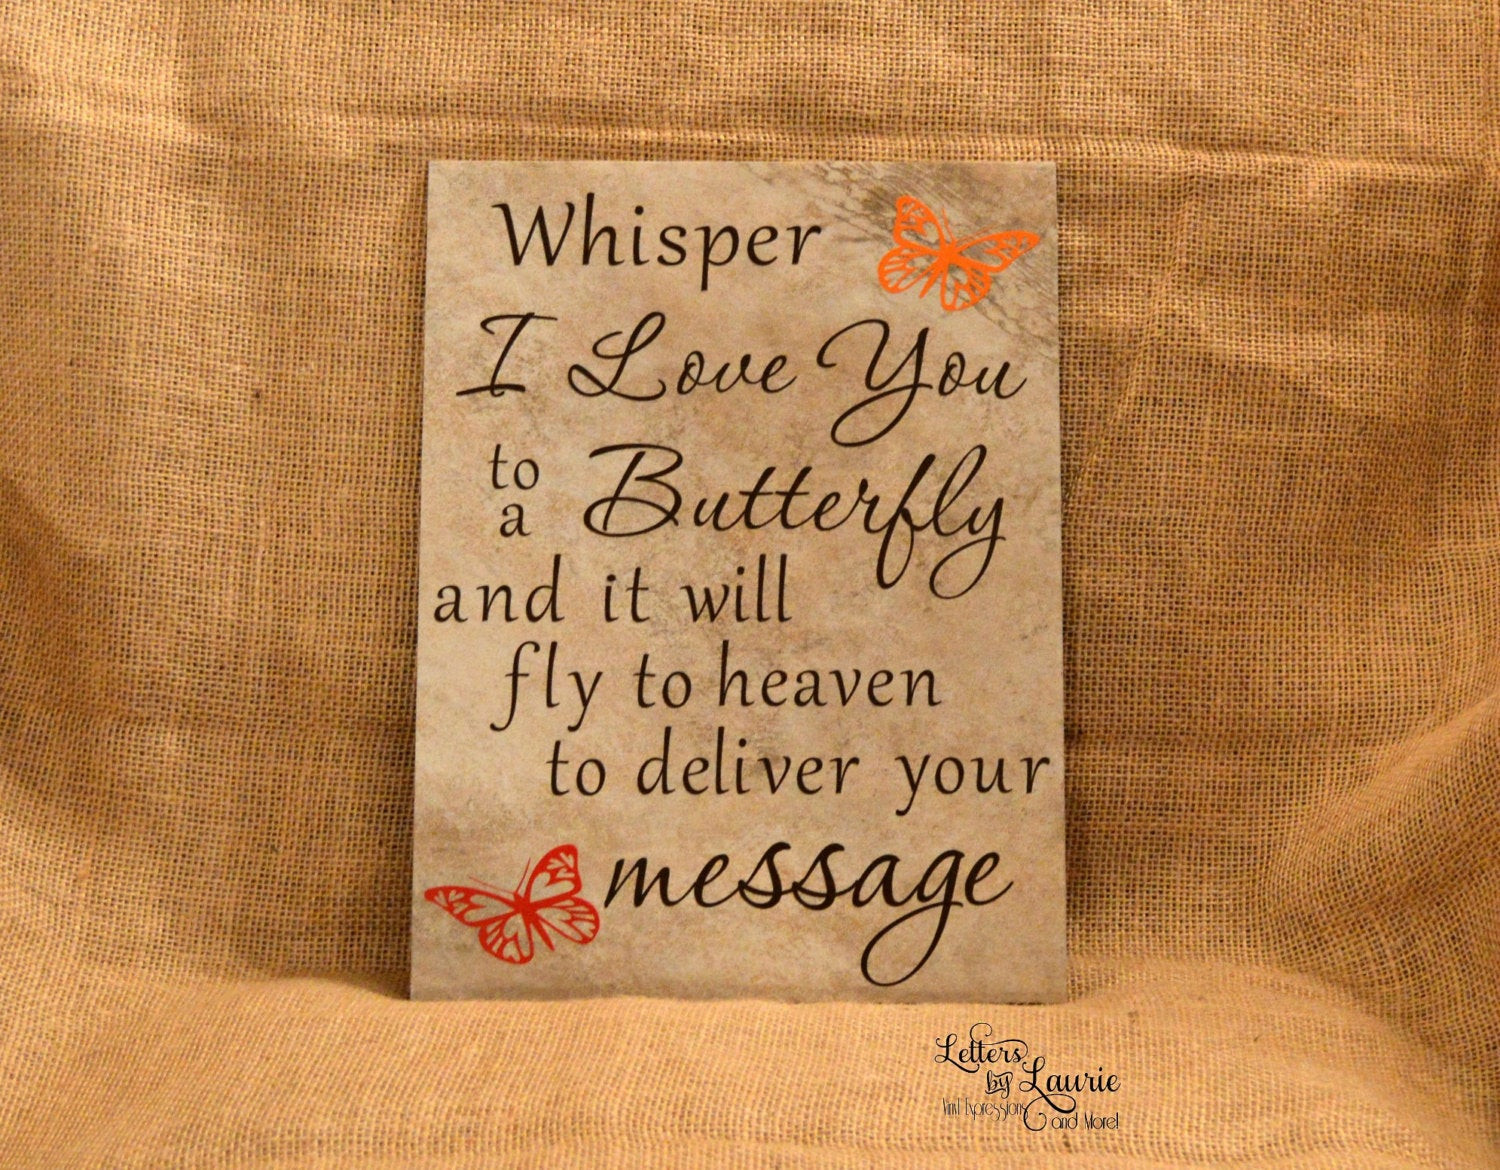 Whisper
I Love You
to
a Butterfly
and it will
fly to heaven
to deliver your
message
Letters
by Laurie
Vinyl Expressions
and More!